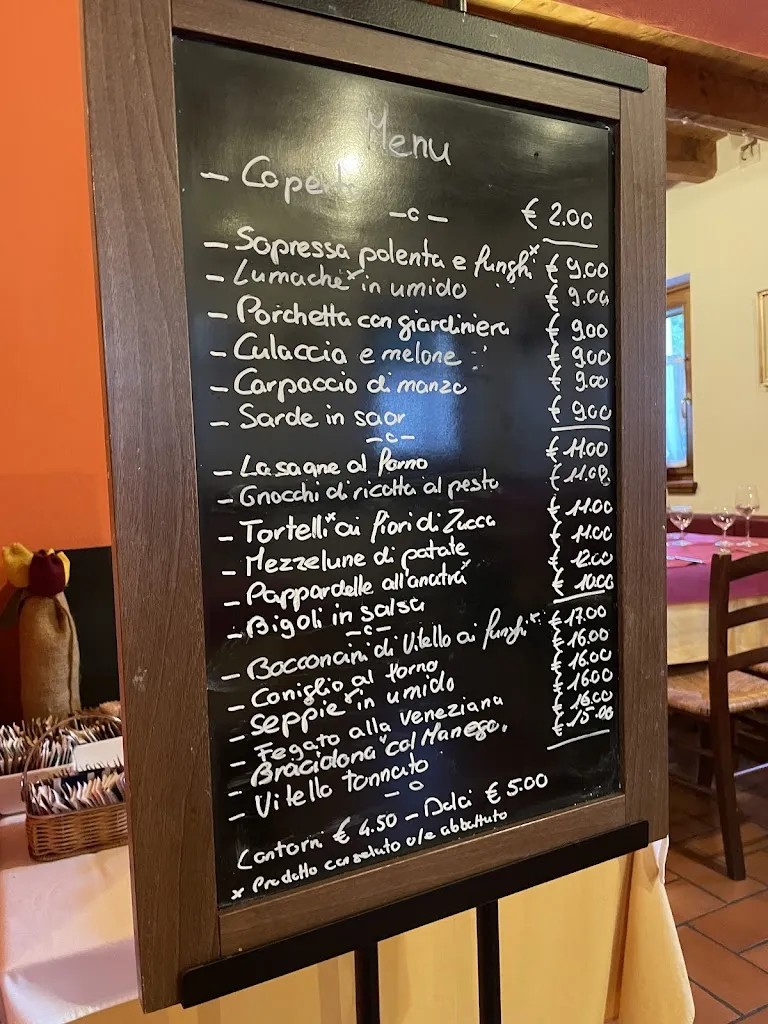 Menu
- Coperti € 2.00
- o -
- Sopressa polenta e funghi* € 9.00
- Lumache* in umido € 9.00
- Porchetta con giardiniera € 9.00
- Culaccia e melone € 9.00
- Carpaccio di manzo € 9.00
- Sarde in saor € 9.00
- o -
- Lasagne al forno € 11.00
- Gnocchi di ricotta al pesto € 11.00
- Tortelli* ai fiori di Zucca € 11.00
- Mezzelune di patate € 11.00
- Pappardelle all'anatra* € 12.00
- Bigoli in salsa € 10.00
- o -
- Bocconcini di Vitello ai funghi* € 17.00
- Coniglio al forno € 16.00
- Seppie* in umido € 16.00
- Fegato alla Veneziana € 16.00
- Braciolona "col Manego" € 16.00
- Vitello tonnato € 15.00
- o
Contorni € 4.50 - Dolci € 5.00
* Prodotto congelato o/e abbattuto